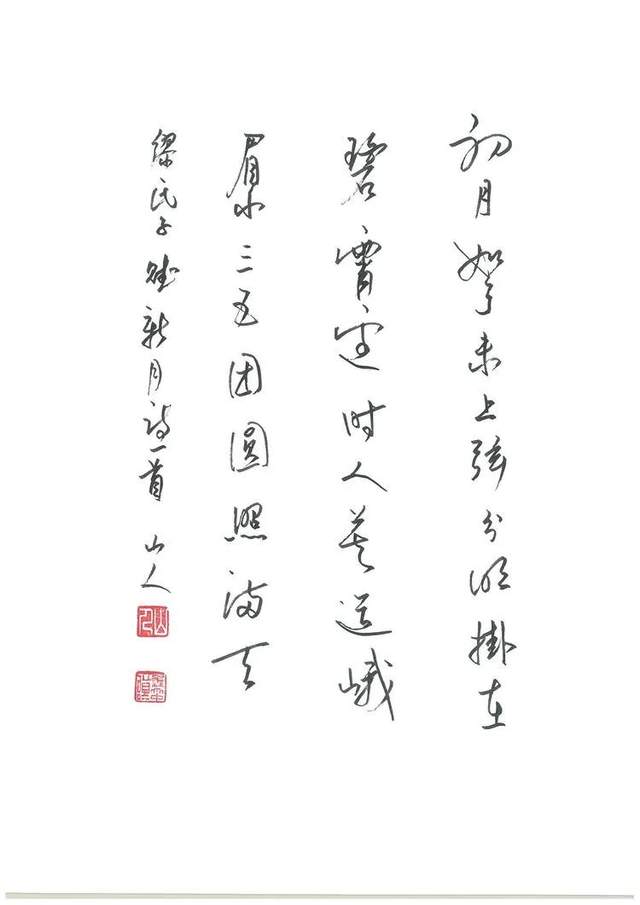 初月如弓未上弦分明掛在
碧霄邊时人莫道峨
眉小三五团圆照满天
繆氏子赋新月诗一首 山人
山人